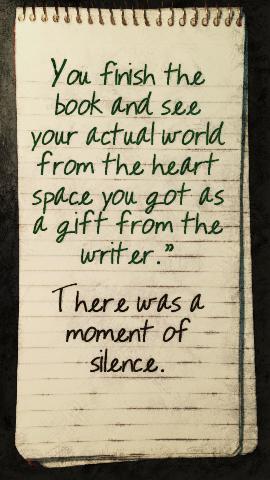 You finish the
book and see
your actual world
from the heart
space you got as
a gift from the
writer."
There was a
moment of
silence.